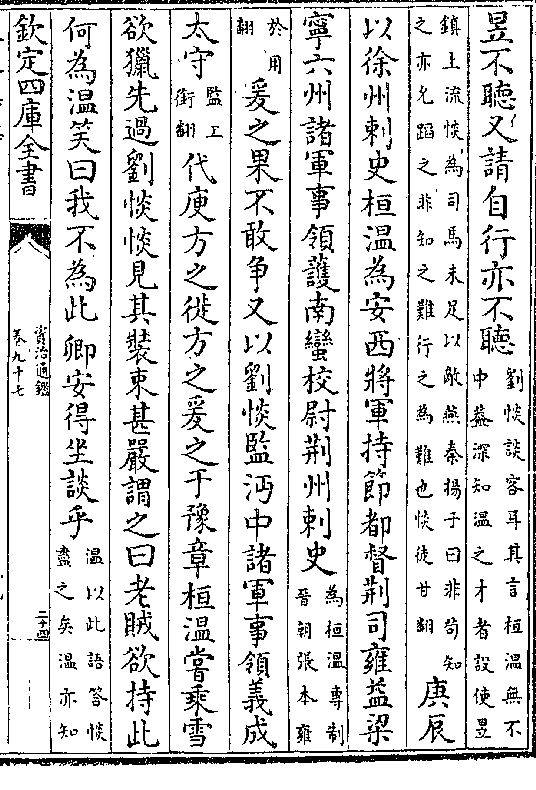 昱不聽又請自行亦不聽
劉惔談客耳其言桓温無不
中蓋深知温之才者設使昱
鎮上流惔為司馬未足以敵燕秦揚子曰非苟知
之亦允蹈之非知之難行之為難也惔徒甘翻
庚辰
以徐州刺史桓温為安西將軍持節都督荆司雍益梁
寧六州諸軍事領護南蠻校尉荆州刺史
為桓温專制
晉朝張本雍
於用
翻
爰之果不敢争又以劉惔監沔中諸軍事領義成
太守
監工
銜翻
代庾方之徙方之爰之于豫章桓温嘗乘雪
欲獵先過劉惔惔見其裝束甚嚴謂之曰老賊欲持此
何為温笑曰我不為此卿安得坐談乎
温以此語答惔
盡之矣温亦知
欽定四庫全書
資治通鑑
卷九十七
二十四